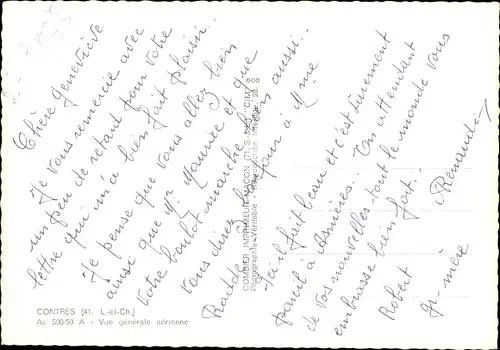 Chère Geneviève
Je vous remercie avec
un peu de retard pour votre
lettre qui m'a bien fait plaisir..
Je pense que vous allez bien
ainsi que Mr Maurice et que
votre boulot marche bien aussi..
vous direz bonjour à Mme
Ici il fait beau et c'est sûrement
pareil à Asnières.. En attendant
de vos nouvelles tout le monde vous
embrasse bien fort.
Robert Renaudin
gr. mère
COMBIER IMPRIMEUR MACON (71.S.-&-L.) "CIM"
Photographie Véritable - Reproduction Interdite
CONTRES (41. L.-et-Ch.)
Ac 590-59 A - Vue générale aérienne